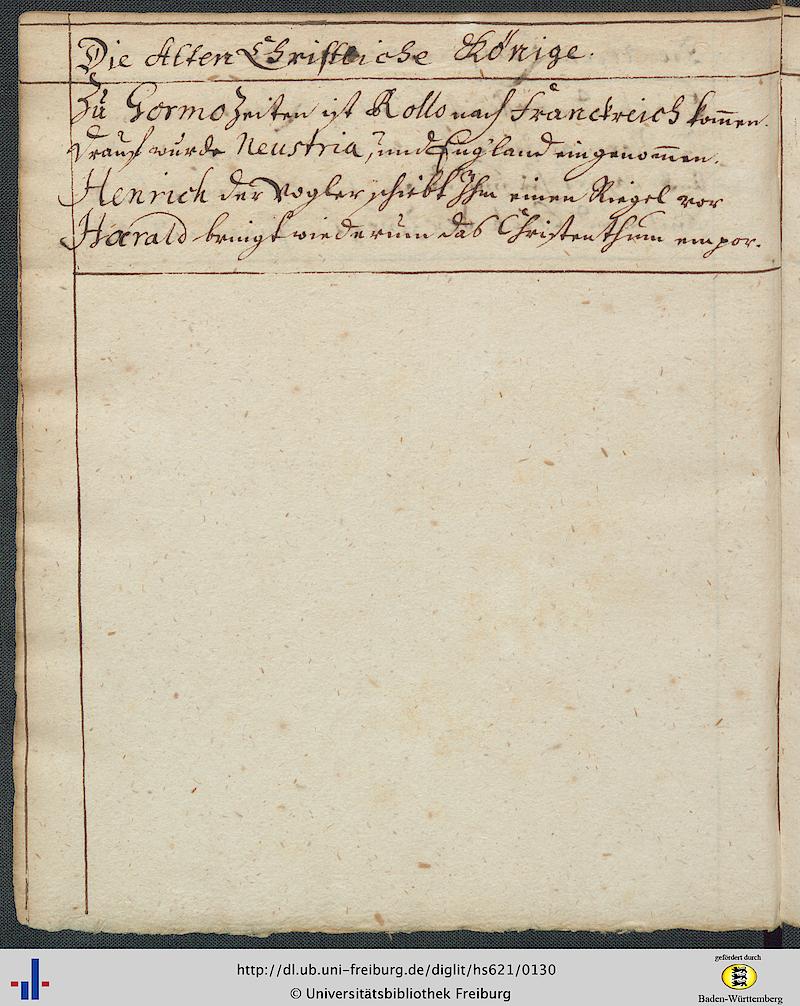 Die Alten Christliche Könige.
Zu Gormo Zeiten ist Rollo nach Franckreich kom̄en.
Drauf wurde Neustria, und England eingenom̄en.
Henrich der Vogler schiebt Ihm einen Riegel vor
Harald bringt wiederum das Christenthum empor.
http://dl.ub.uni-freiburg.de/diglit/hs621/0130
© Universitätsbibliothek Freiburg
gefördert durch
Baden-Württemberg